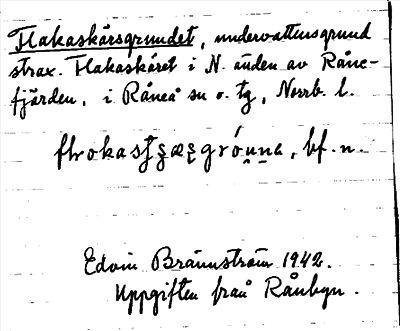 Flakaskärsgrundet, undervattensgrund
strax. Flakaskäret i N. änden av Råne-
fjärden, i Råneå sn o. tg, Norrb. l.
bf. n.
Edvin Brännström 1942.
Uppgiften från Rånbyn.